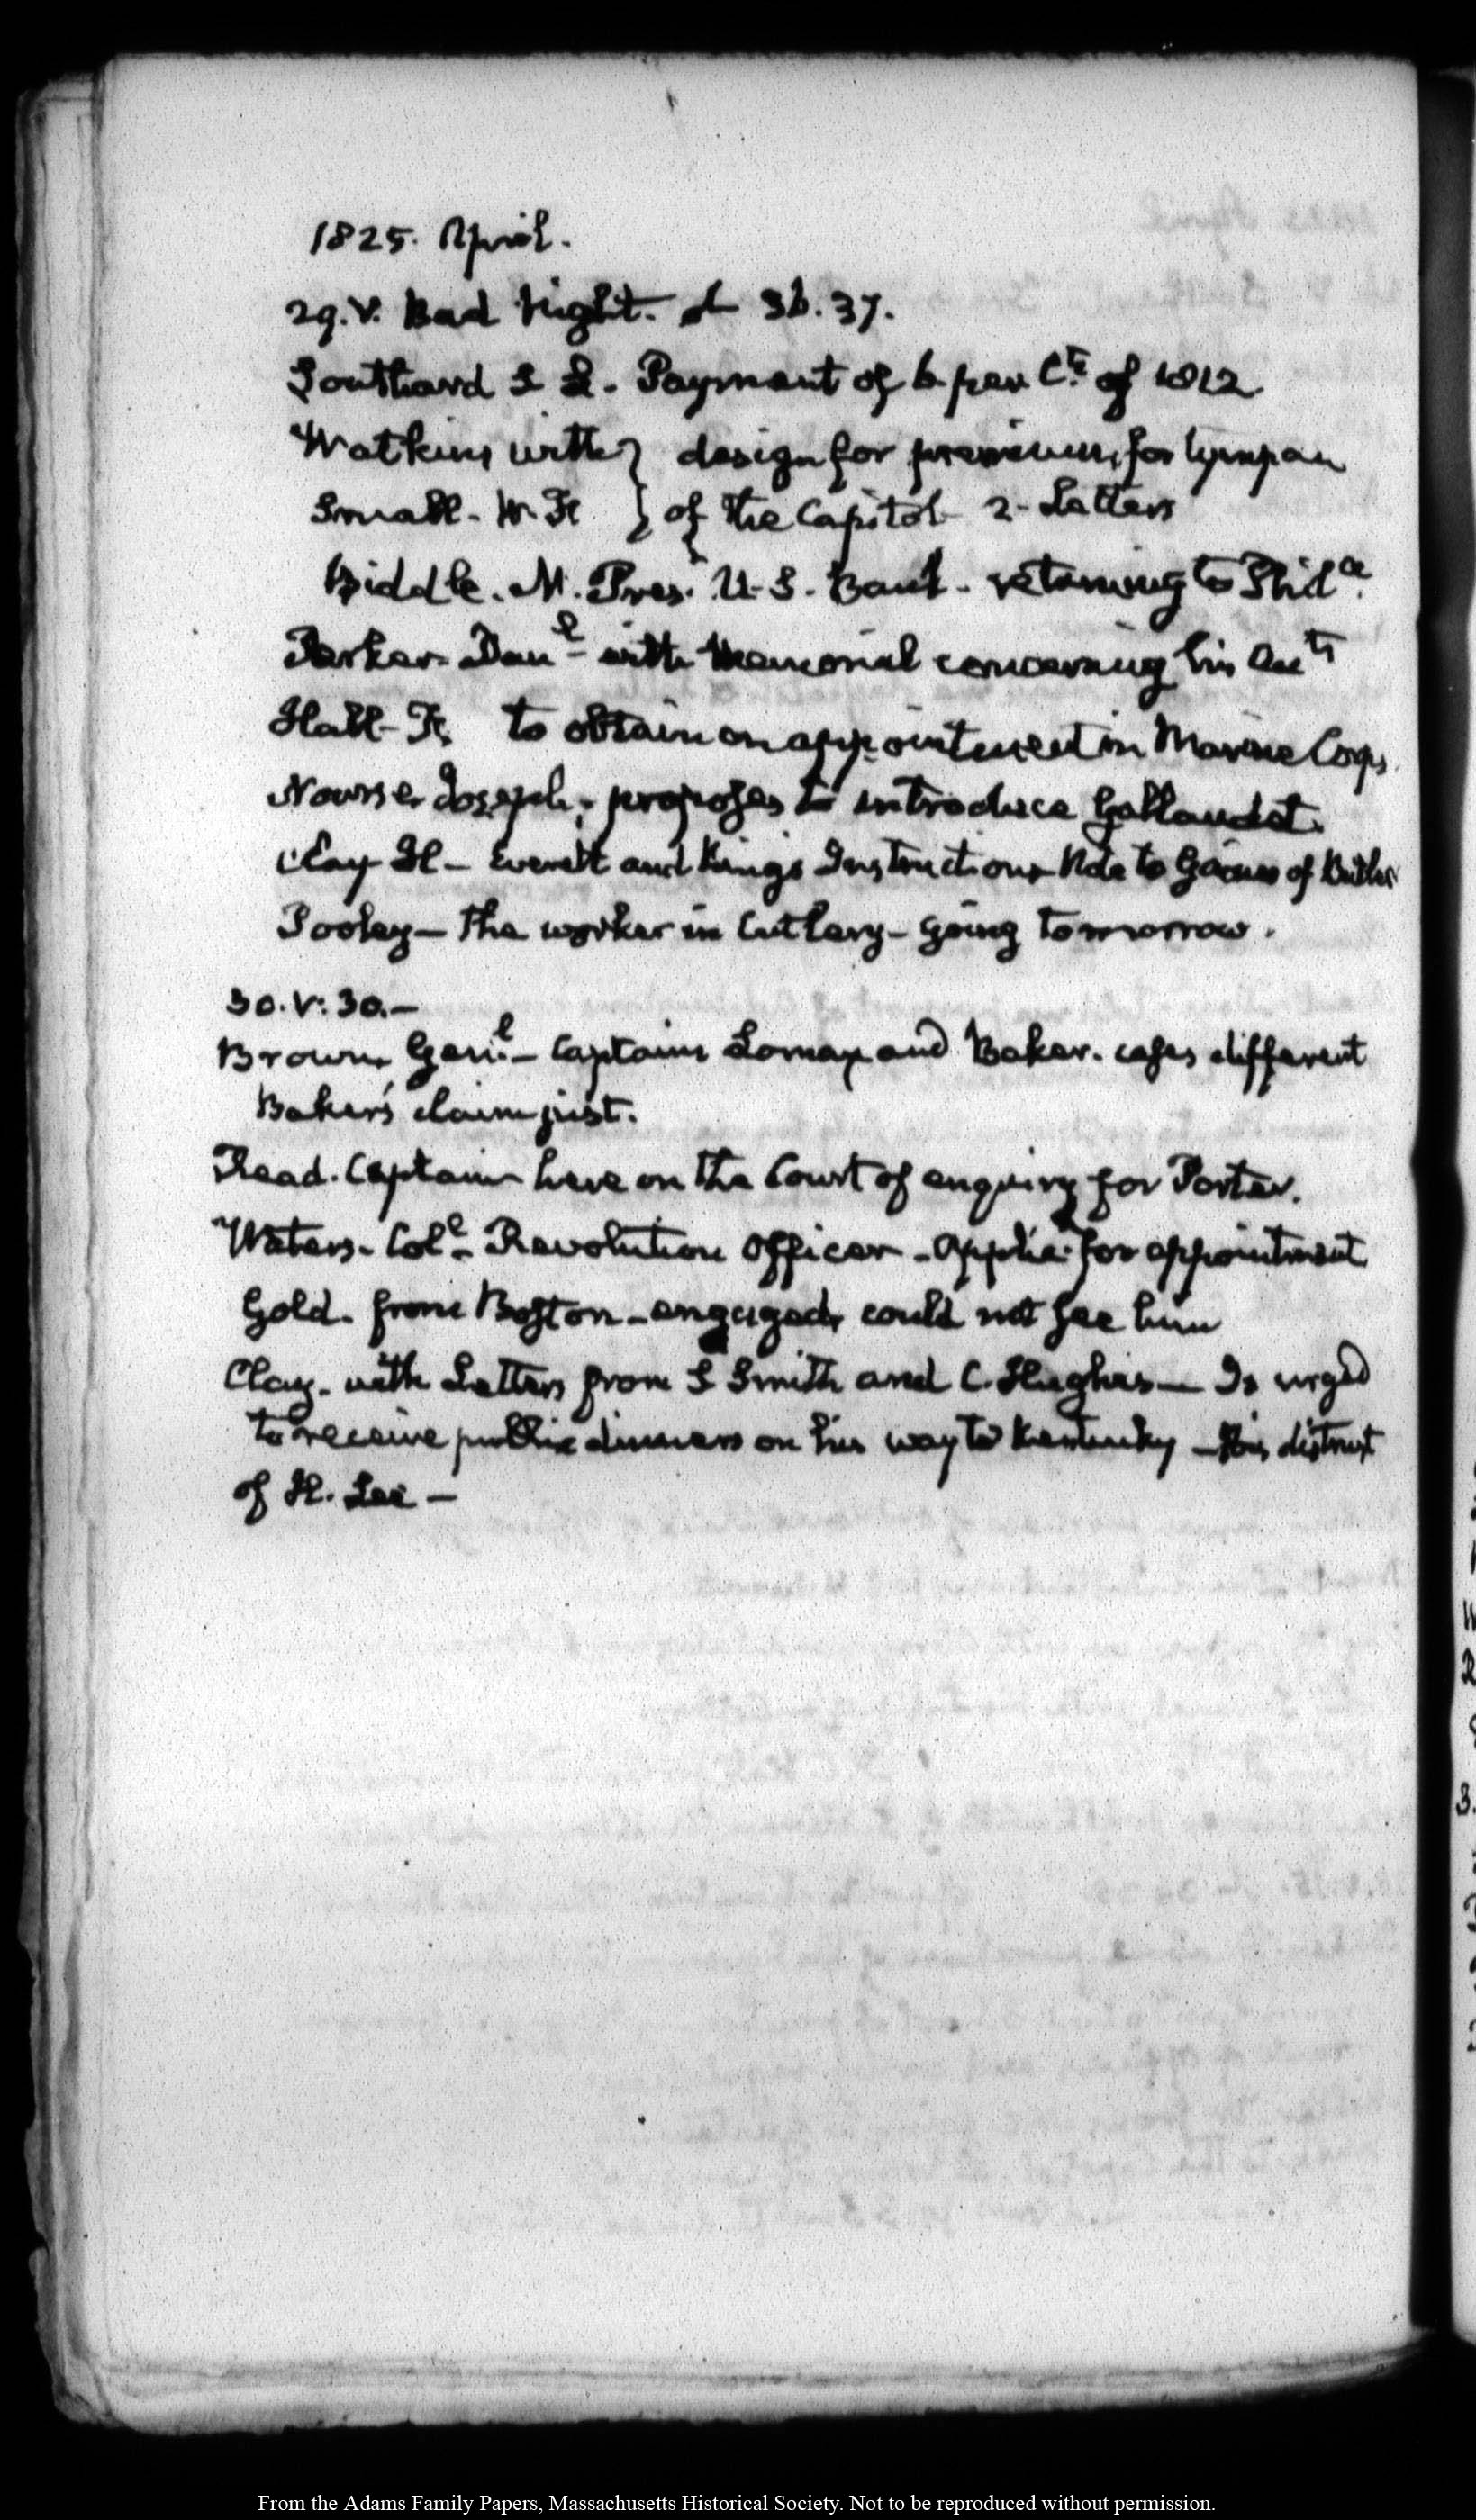 1825. April.
29. V. Bad Night. 36. 37.
Southard S L. Payment of 6 per Ct. of 1812
Watkins with } design for premium, for tympan
Small. W. F } of the Capitol 2. Letters
Biddle. N. Pres. U.S. Bank. returning to Phila.
Parker. Danl. with Memorial concerning his Acts
Hall. F. to obtain an appointment in Marine Corps.
Nourse. Joseph, proposes to introduce Gallaudet.
Clay H— Everett and King's Instructions Note to Gaines of Butler
Pooley— the worker in Cutlery— going tomorrow.
30. V: 30.—
Brown, Genl.— Captains Lomax and Baker. cases different
Baker's claim just.
Read. Captain here on the Court of enquiry for Porter.
Waters. Coll. Revolution Officer— Applies for appointment
Gold. from Boston— engaged, could not see him
Clay. with Letters from S Smith and C. Hughes— Is urged
to receive public dinners on his way to Kentucky— His distrust
of H. Lee—
From the Adams Family Papers, Massachusetts Historical Society. Not to be reproduced without permission.